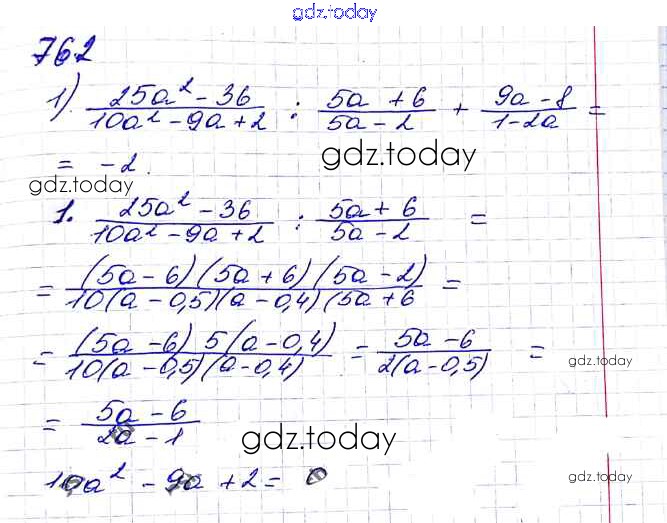 gdz.today
762
1) (25a² - 36)/(10a² - 9a + 2) : (5a + 6)/(5a - 2) + (9a - 8)/(1 - 2a) =
gdz.today
= -2.
gdz.today
1. (25a² - 36)/(10a² - 9a + 2) : (5a + 6)/(5a - 2) =
= (5a - 6)(5a + 6)(5a - 2)/10(a - 0,5)(a - 0,4)(5a + 6 =
= (5a - 6) 5(a - 0,4)/10(a - 0,5)(a - 0,4) = (5a - 6)/2(a - 0,5) =
gdz.today
= (5a - 6)/(2a - 1)
gdz.today
10a² - 9a + 2 = 0
gdz.today